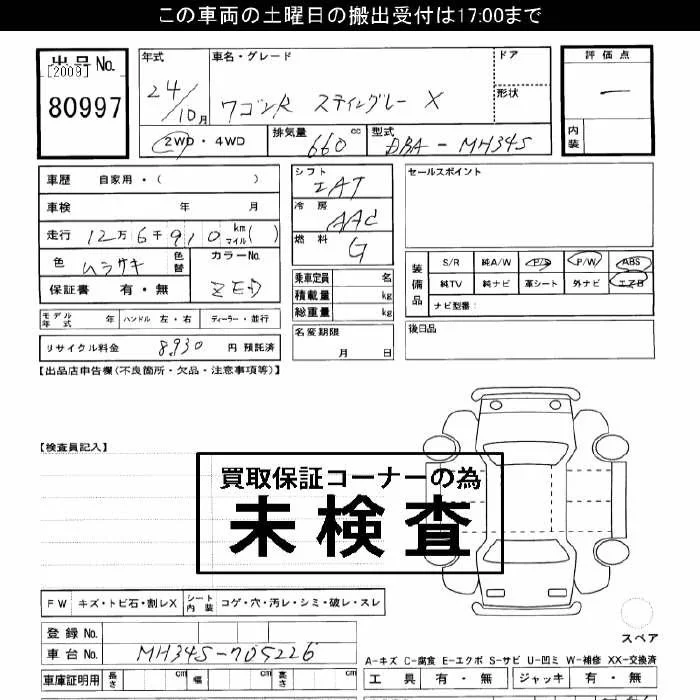 この車両の土曜日の搬出受付は17:00まで
出品No.
[2009]
80997
年式
24/10月
車名・グレード
ワゴンR スティングレー X
ドア
形状
評価点
一
内装
2WD・4WD
排気量 660 cc
型式 DBA-MH34S
車歴 自家用・( )
車検 年 月
走行 12万6千910 km マイル( )
色 ムラサキ 色替
カラーNo. ZED
保証書 有・無
シフト IAT
冷房 AAC
燃料 G
乗車定員 名
積載量 kg
総重量 kg
名変期限
月 日
セールスポイント
装備品
S/R 純A/W P/S P/W ABS
純TV 純ナビ 革シート 外ナビ エアB
ナビ型番:
後日品
モデル年式 年 ハンドル 左・右 ディーラー・並行
リサイクル料金 8,930 円 預託済
【出品店申告欄(不良箇所・欠品・注意事項等)】
【検査員記入】
買取保証コーナーの為
未検査
FW キズ・トビ石・割レX シート内装 コゲ・穴・汚レ・シミ・破レ・スレ
スペア
登録No.
車台No. MH34S-705226
A-キズ C-腐食 E-エクボ S-サビ U-凹ミ W-補修 XX-交換済
車庫証明用 長さ cm 幅 cm 高さ cm
工具 有・無 ジャッキ 有・無